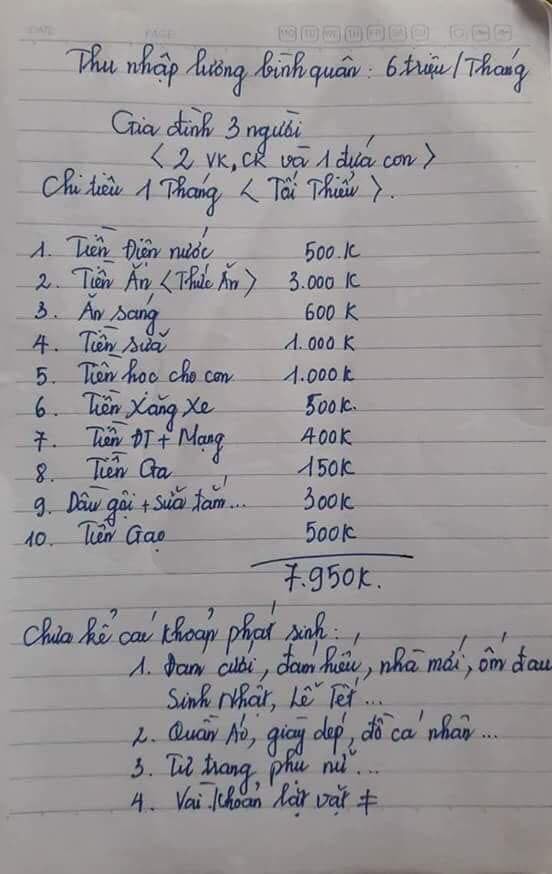 DATE PAGE MO TU WE TH FR SA SU
Thu nhập lương bình quân: 6 triệu/Tháng
Gia đình 3 người
< 2 VK, CK và 1 đứa con >
Chi tiêu 1 Tháng < Tối Thiểu >.
1. Tiền Điện nước 500.K
2. Tiền Ăn <Thức Ăn> 3.000 K
3. Ăn sáng 600 K
4. Tiền sữa 1.000 K
5. Tiền học cho con 1.000K
6. Tiền Xăng Xe 500K.
7. Tiền ĐT + Mạng 400K
8. Tiền Ga 150K
9. Dầu gội + Sữa tắm... 300K
10. Tiền Gạo 500K
7.950K.
Chưa kể các khoản phát sinh:
1. Đám cưới, đám hiếu, nhà mới, ốm đau
Sinh Nhật, Lễ Tết...
2. Quần Áo, giày dép, đồ cá nhân...
3. Tư trang phụ nữ...
4. Vài Khoản lặt vặt ≠